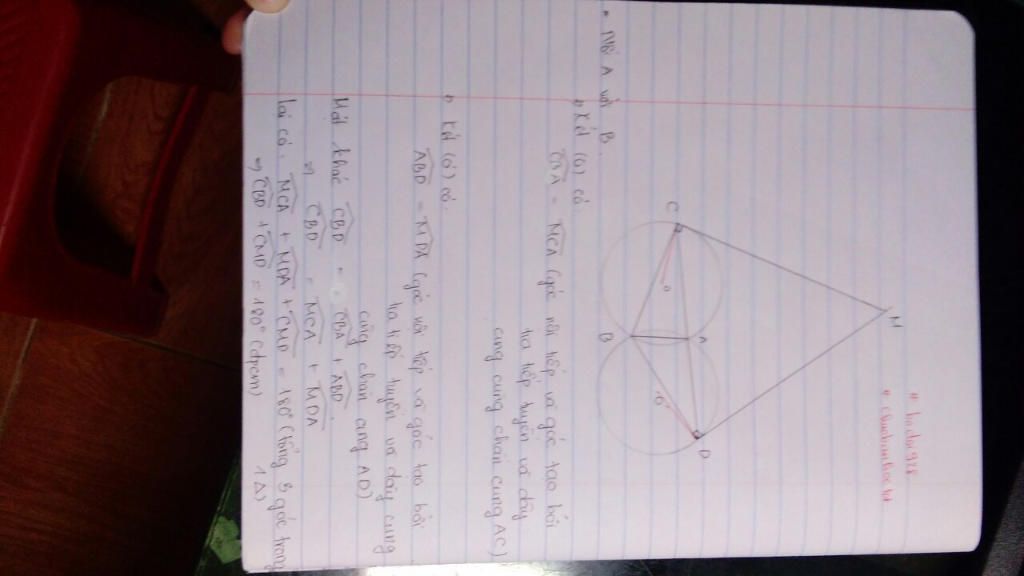 M
C
O
A
B
O'
D
• Nối A với B.
+) Xét (O) có.
CBA = MCA (góc nội tiếp và góc tạo bởi
tia tiếp tuyến và dây
cung cùng chắn cung AC)
+) Xét (O') có.
ABD = MDA (góc nội tiếp và góc tạo bởi
tia tiếp tuyến và dây cung
cùng chắn cung AD)
Mặt khác CBD = CBA + ABD.
⇒ CBD = MCA + MDA
Lại có. MCA + MDA + CMD = 180° (tổng 3 góc trong
1 Δ)
⇒ CBD + CMD = 180° (đpcm)